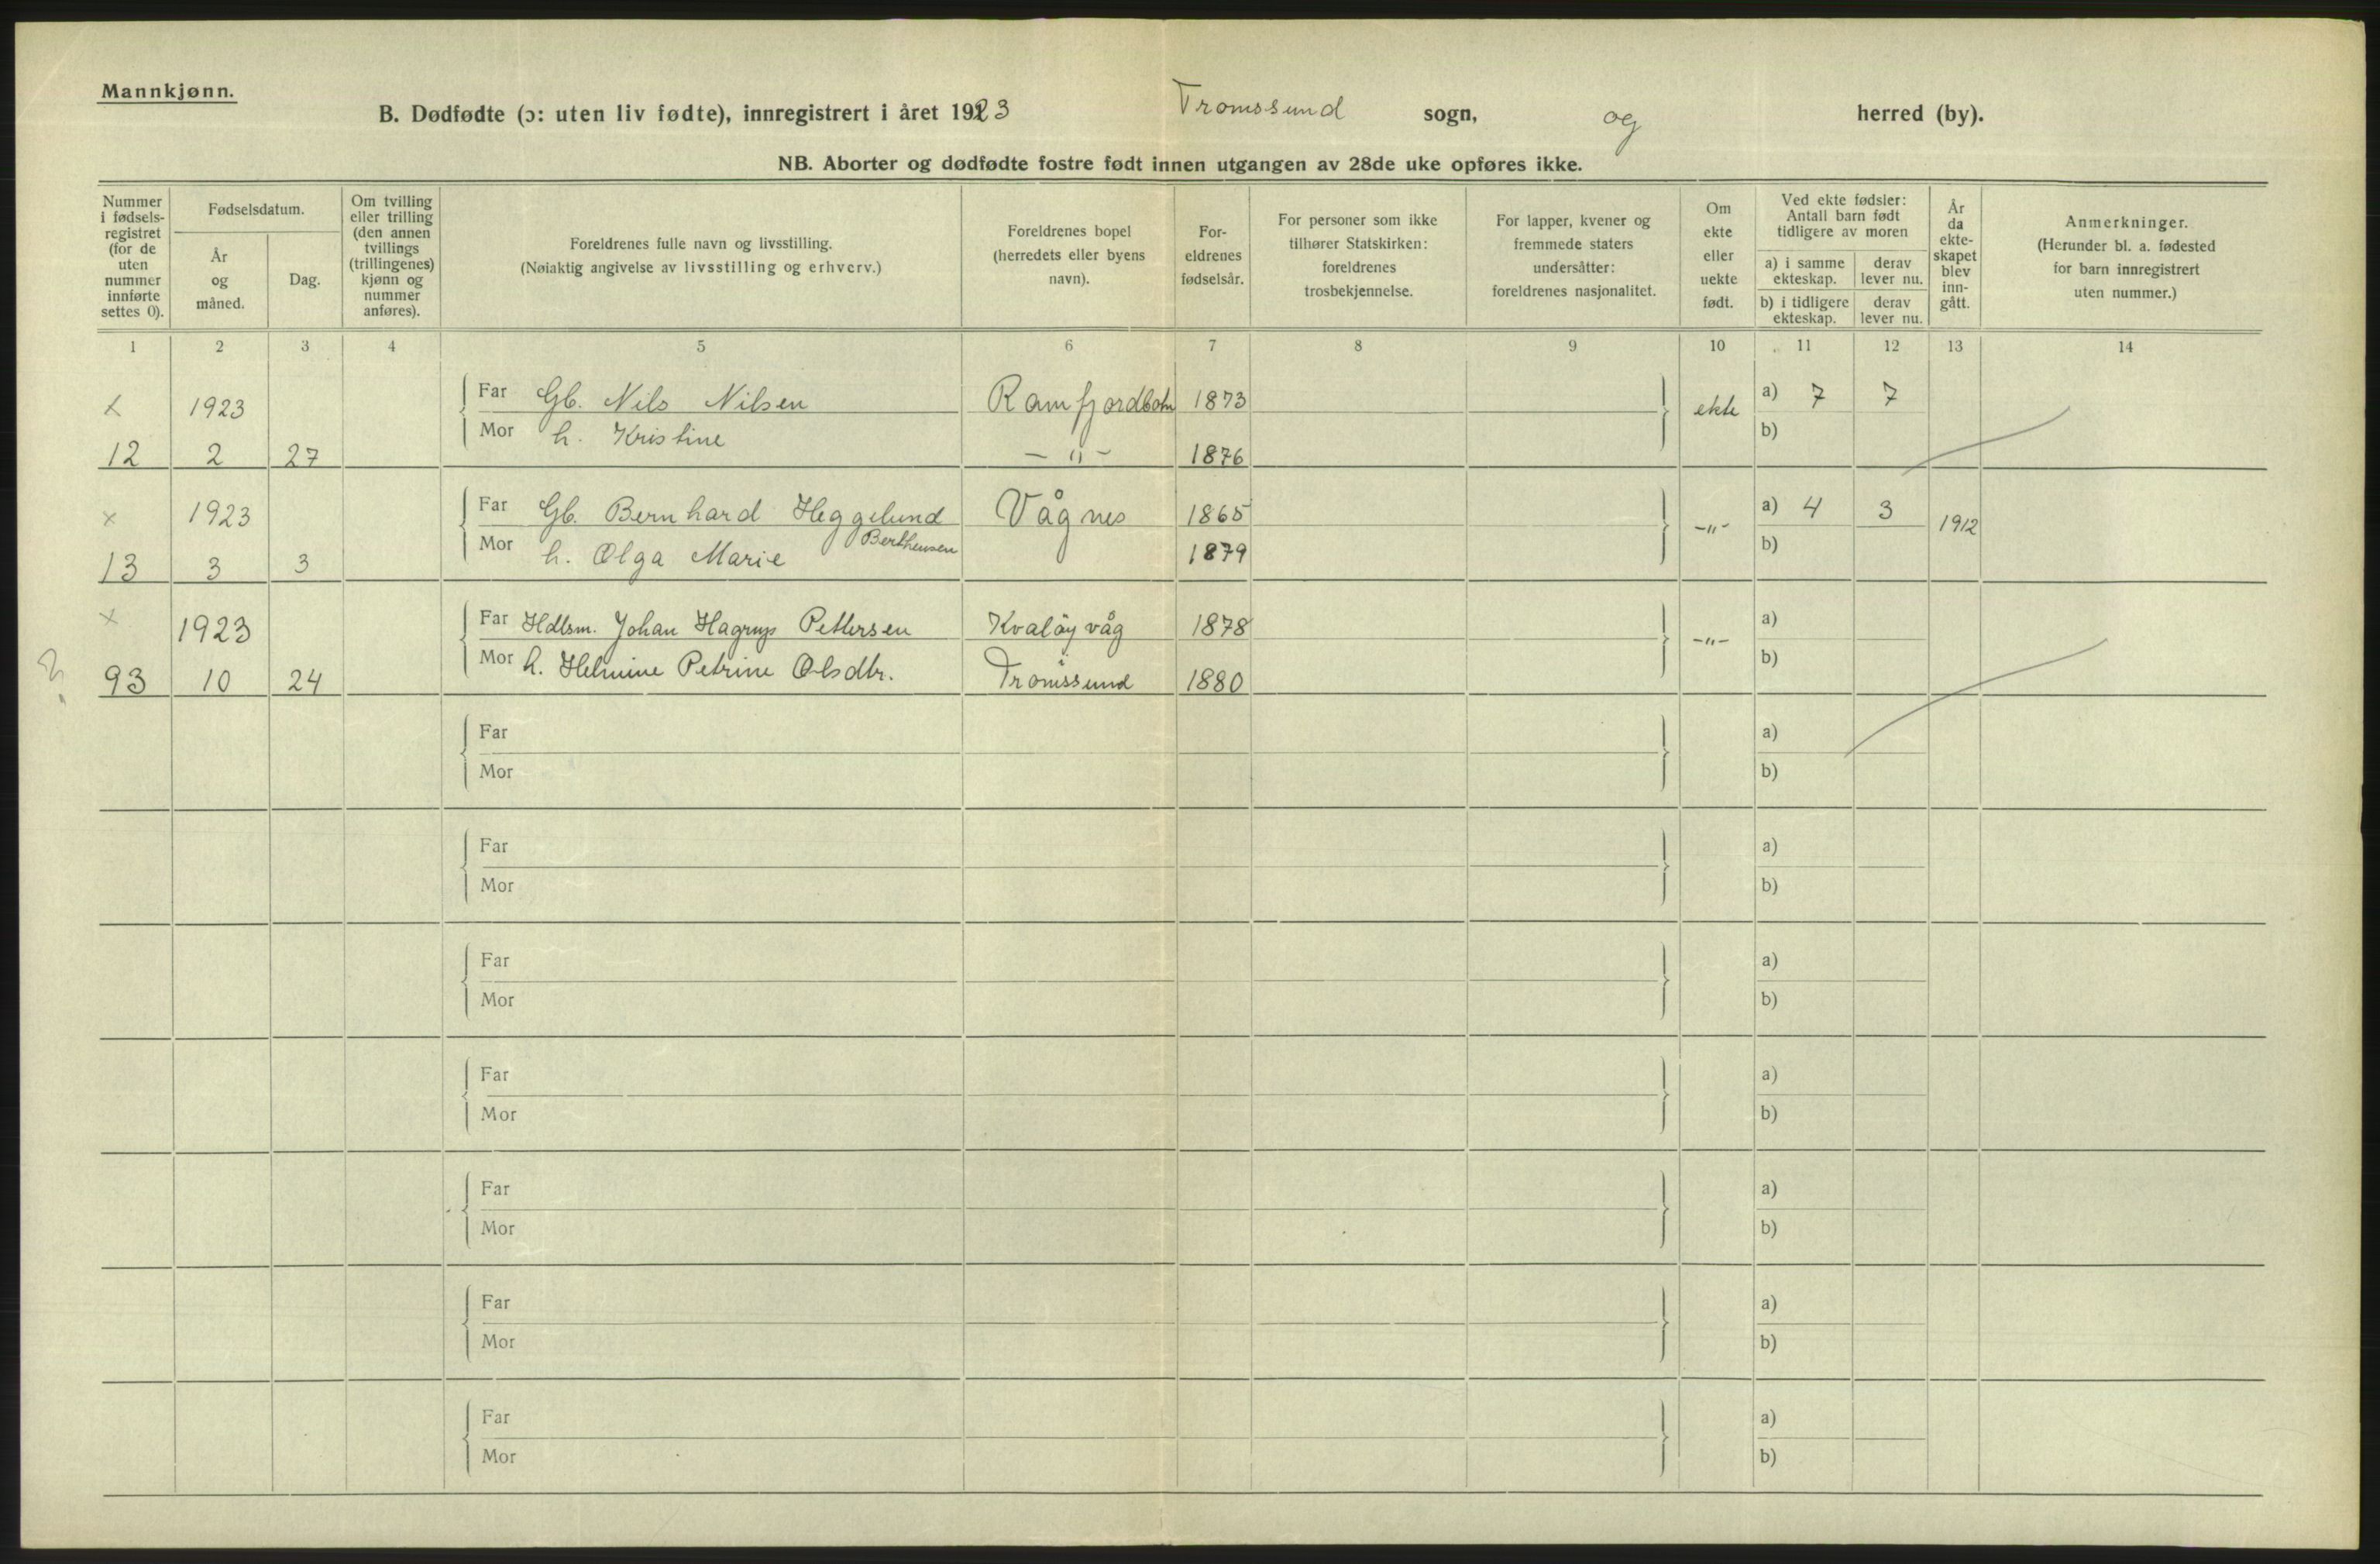 Mannkjønn.
B. Dødfødte (ɔ: uten liv fødte), innregistrert i året 1923 Tromssund sogn, og herred (by).
NB. Aborter og dødfødte fostre født innen utgangen av 28de uke opføres ikke.
Nummer
i fødsels-
registret
(for de
uten
nummer
innførte
settes 0).
Fødselsdatum.
År
og
måned.
Dag.
Om tvilling
eller trilling
(den annen
tvillings
(trillingenes)
kjønn og
nummer
anføres).
Foreldrenes fulle navn og livsstilling.
(Nøiaktig angivelse av livsstilling og erhverv.)
Foreldrenes bopel
(herredets eller byens
navn).
For-
eldrenes
fødselsår.
For personer som ikke
tilhører Statskirken:
foreldrenes
trosbekjennelse.
For lapper, kvener og
fremmede staters
undersåtter:
foreldrenes nasjonalitet.
Om
ekte
eller
uekte
født.
Ved ekte fødsler:
Antall barn født
tidligere av moren
a) i samme
ekteskap.
derav
lever nu.
b) i tidligere
ekteskap.
derav
lever nu.
År
da
ekte-
skapet
blev
inn-
gått.
Anmerkninger.
(Herunder bl. a. fødested
for barn innregistrert
uten nummer.)
1 2 3 4 5 6 7 8 9 10 11 12 13 14
x 1923 Far Gb. Nils Nilsen Ramfjordbotn 1873 ekte a) 7 7
12 2 27 Mor h. Kristine - " - 1876 b)
x 1923 Far Gb. Bernhard Heggelund Vågnes 1865 -"- a) 4 3 1912
13 3 3 Mor h. Olga Marie Bertheusen 1879 b)
x 1923 Far Hdlsm. Johan Hagrup Pettersen Kvaløyvåg 1878 -"- a)
? 93 10 24 Mor h. Helmine Petrine Olsdtr. Tromssund 1880 b)
Far a)
Mor b)
Far a)
Mor b)
Far a)
Mor b)
Far a)
Mor b)
Far a)
Mor b)
Far a)
Mor b)
Far a)
Mor b)